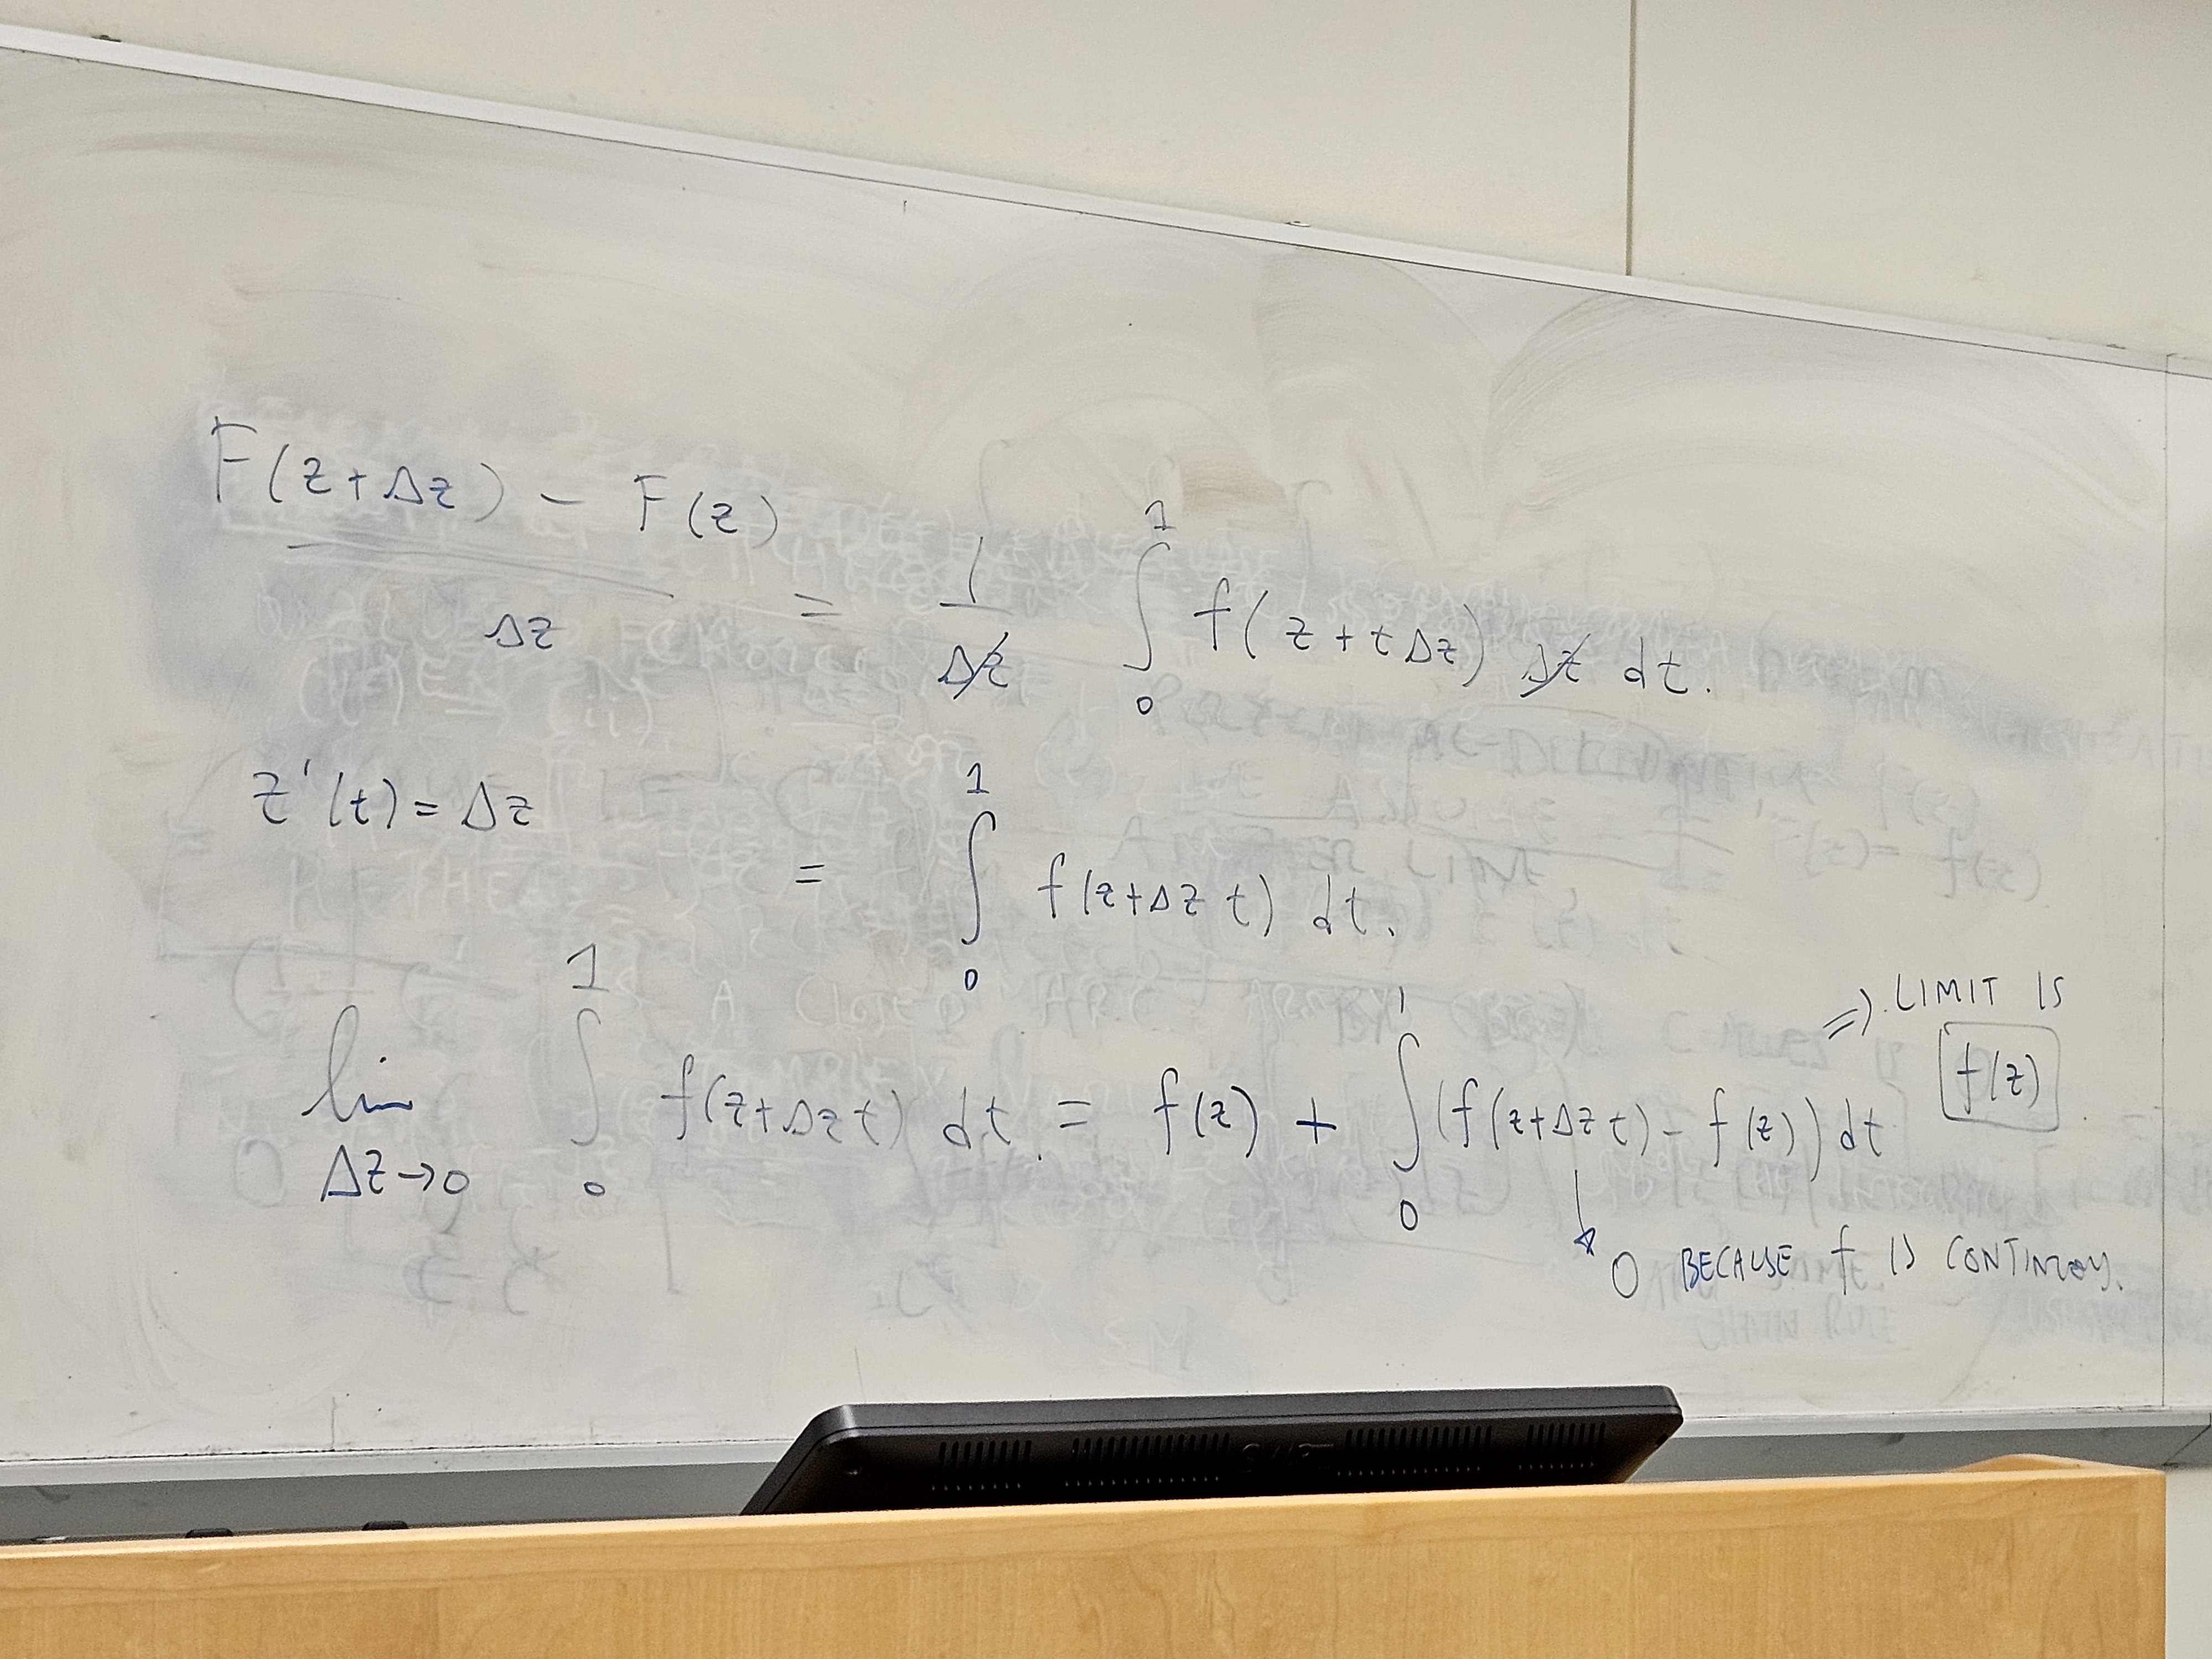 F(z+Δz) - F(z) / Δz = 1/Δz ∫₀¹ f(z+tΔz) Δz dt.
z'(t) = Δz
= ∫₀¹ f(z+Δz t) dt.
lim Δz→0 ∫₀¹ f(z+Δz t) dt. = f(z) + ∫₀¹ (f(z+Δz t) - f(z)) dt
⇒ LIMIT IS
f(z)
↓ 0 BECAUSE f IS CONTINUOUS.